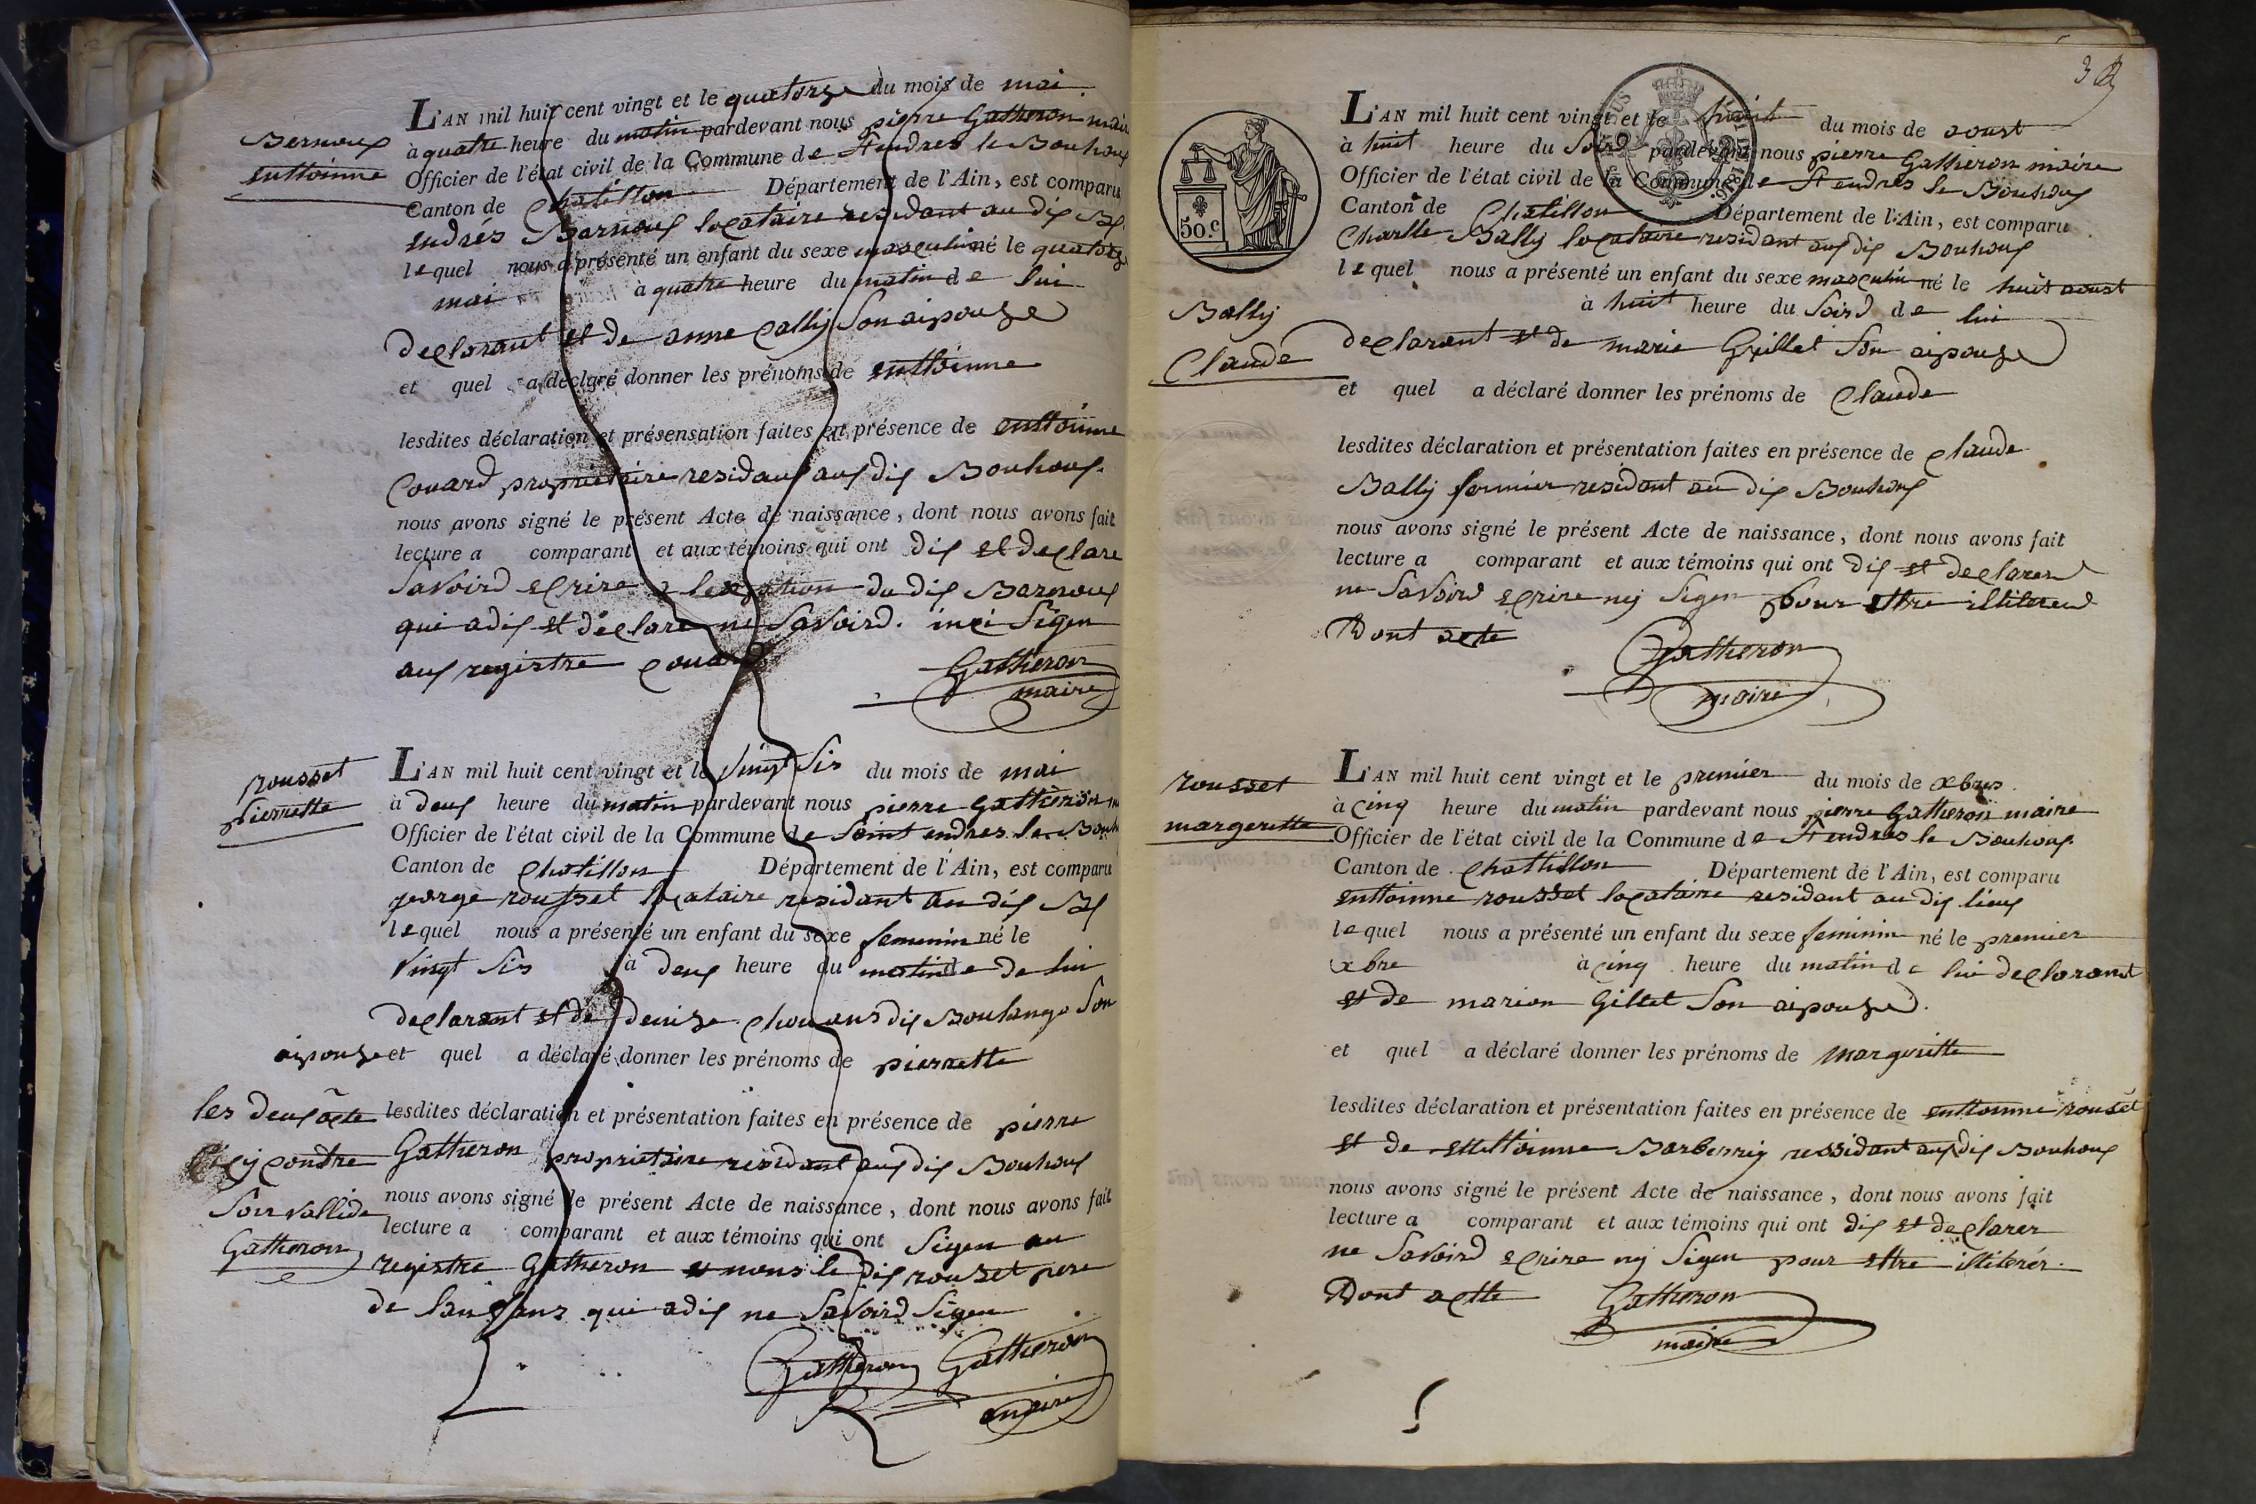 Bernoux
enttoinne
L'AN mil huit cent vingt et le quatorze du mois de mai
à quatre heure du matin pardevant nous pierre Gatheron maire
Officier de l'état civil de la Commune de St endres le Bouhoux
Canton de Chatillon Département de l'Ain, est comparu
endres Barnoux locataire residant au dis B.
lequel nous a présenté un enfant du sexe masculin né le quatorze
mai à quatre heure du matin de lui
declarant et de anne Cally Son aipouze
et quel a déclaré donner les prénoms de enttoinne
lesdites déclaration et présensation faites en présence de enttoinne
Couard propriétaire residant aux dis Bouhoux.
nous avons signé le présent Acte de naissance, dont nous avons fait
lecture a comparant et aux témoins qui ont dis et declare
Savoird ecrire a du dis Barnoux
qui a dis et déclare ne Savoird. Sigen
aux registre Couard
Gatheron
maire
rousset
pierrette
L'AN mil huit cent vingt et le vingt Sis du mois de mai
à deux heure du matin pardevant nous pierre Gatheron
Officier de l'état civil de la Commune de Saint endres le Bouh
Canton de Chatillon Département de l'Ain, est comparu
george rousset locataire residant au dis B
lequel nous a présenté un enfant du sexe femenin né le
vingt Sis à deux heure du matin de de lui
declarant et de denize chouans dis Boulange Son
aipouze et quel a déclaré donner les prénoms de pierrette
les deux acte
cy contre
Son vallide
Gatheron
lesdites déclaration et présentation faites en présence de pierre
Gatheron propriétaire residant aux dis Bouhoux
nous avons signé le présent Acte de naissance, dont nous avons fait
lecture a comparant et aux témoins qui ont Sigen au
registre Gatheron et nons le dis rouzet pere
de lanfanz qui a dis ne Savoird Sigen
Gatheron Gatheron
maire
3
50.c
Bally
Claude
L'AN mil huit cent vingt et le huit du mois de aoust
à huit heure du Soird pardevant nous pierre Gatheron maire
Officier de l'état civil de la Commune de St endres le Bouhoux
Canton de Chatillon Département de l'Ain, est comparu
Charlle Bally locataire residant aux dis Bouhoux
lequel nous a présenté un enfant du sexe masculin né le huit aoust
à huit heure du Soird de lui
declarant et de marie Guillet Son aipouze
et quel a déclaré donner les prénoms de Claude
lesdites déclaration et présentation faites en présence de claude
Bally fermier residant au dis Bouhoux
nous avons signé le présent Acte de naissance, dont nous avons fait
lecture a comparant et aux témoins qui ont dis et declarer
ne Savoird ecrire ny Sigen pour ettre illitered
Dont acte
Gatheron
maire
rousset
margerette
L'AN mil huit cent vingt et le premier du mois de xbres
à cinq heure du matin pardevant nous pierre Gatheron maire
Officier de l'état civil de la Commune de St endres le Bouhoux
Canton de Chattillon Département de l'Ain, est comparu
enttoinne rousset locataire residant au dis lieux
lequel nous a présenté un enfant du sexe feminin né le premier
xbre à cinq heure du matin de lui declarant
et de marion Gillet Son aipouze.
et quel a déclaré donner les prénoms de margeritte
lesdites déclaration et présentation faites en présence de enttoinne rouset
et de ettettoinne Barberriy ressidant aux dis Bouhoux
nous avons signé le présent Acte de naissance, dont nous avons fait
lecture a comparant et aux témoins qui ont dis et declarer
ne Savoird ecrire ny Sigen pour ettre illiterér.
Dont actte
Gatheron
maire